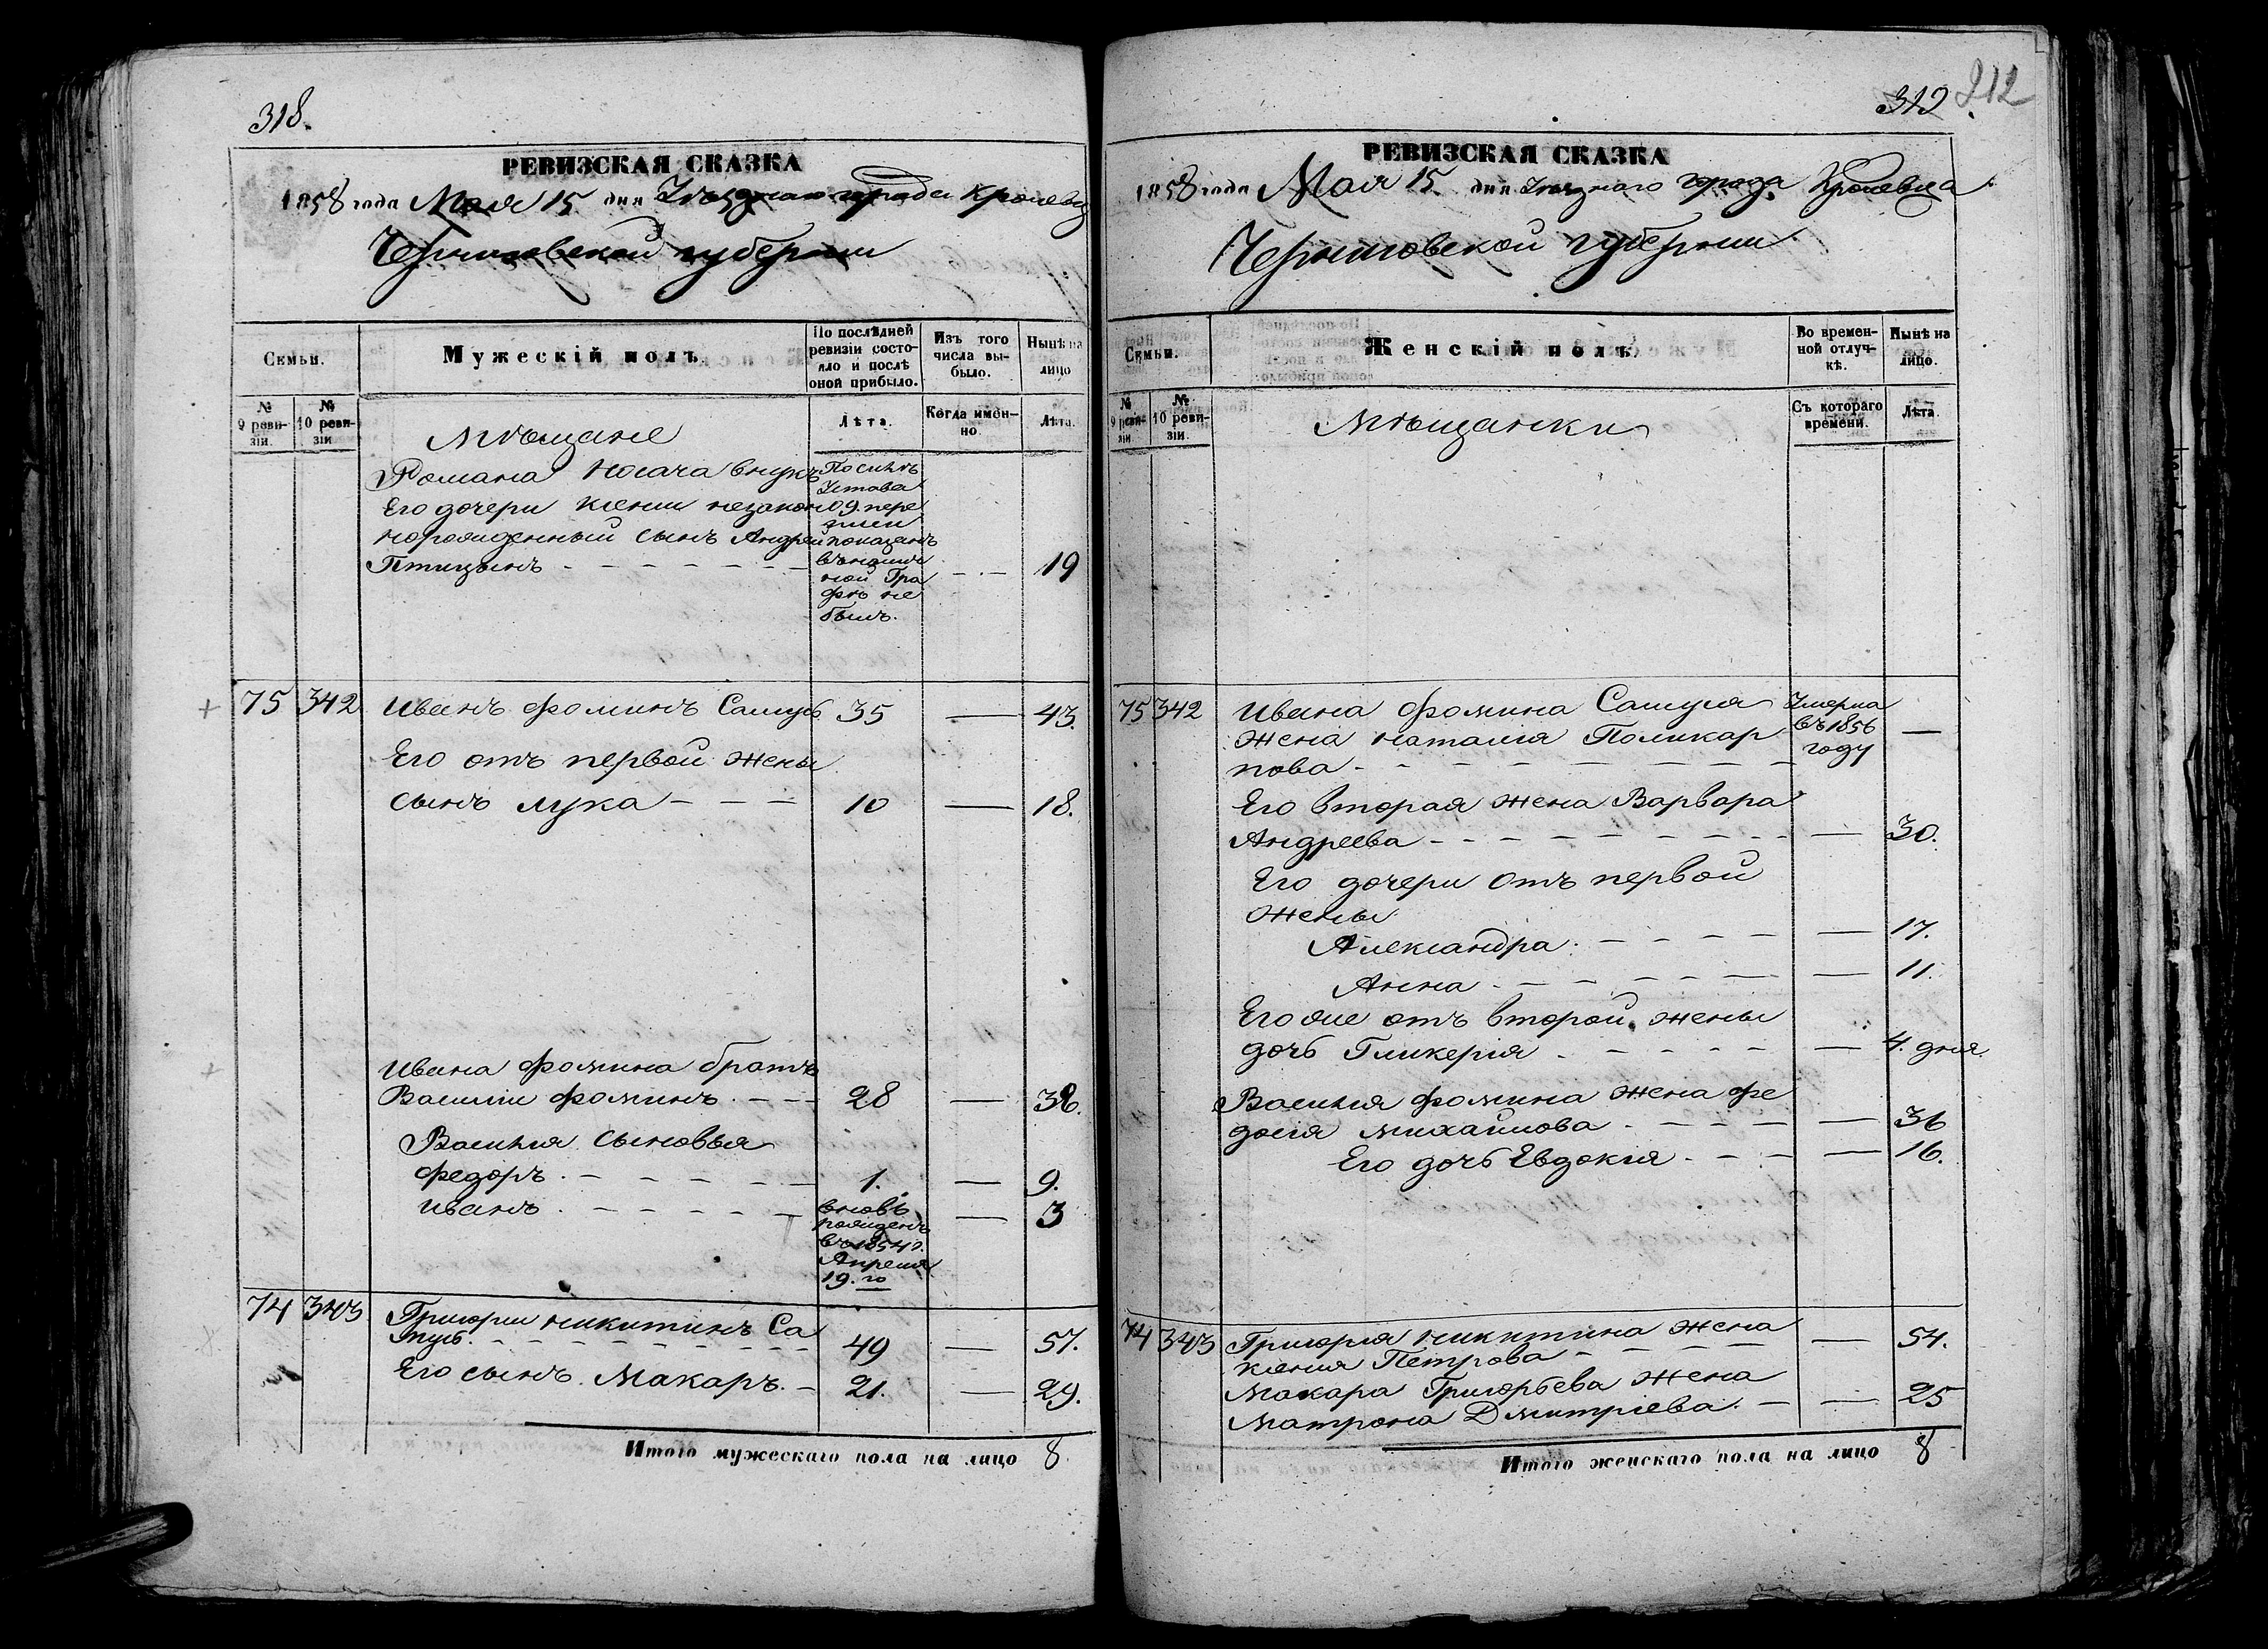 318.
РЕВИЗСКАЯ СКАЗКА
1858 года Мая 15 дня Уѣзднаго города Кролевца
Черниговской губернии
Семьи.
Мужескій полъ.
По послѣдней ревизіи состояло и послѣ оной прибыло.
Изъ того числа выбыло.
Нынѣ на лицо
№ 9 ревизіи.
№ 10 ревизіи
Мѣщане
Лѣта.
Когда именно.
Лѣта.
Романа Носача внукъ
Его дочери Ксении незакон
норожденный сынъ Андрей
Птицынъ - - - - - - - 19
Устава
09. пере
писи
показанъ
ной Гра
фѣ не
былъ.
75 342 Иванъ Фоминъ Сатуъ 35 — 43.
Его отъ первой жены
сынъ Лука - - - 10 — 18.
Ивана Фомина братъ
Василіи Фоминъ. - - 28 — 36.
Василия сыновья
Федоръ. - - - - - - 1. — 9.
Иванъ. - - - - - вновь — 3
рожденъ
въ 1854 г.
Апреля
19. го
74 343 Григории Никитинъ Са
туъ. - - - - - - - - 49 — 57.
Его сынъ Макаръ. - 21. — 29.
Итого мужескаго пола на лицо 8.
319
212
РЕВИЗСКАЯ СКАЗКА
1858 года Мая 15 дня Уѣзднаго города Кролевца
Черниговской губернии
Семьи.
Женскій полъ.
Во временной отлучкѣ.
Нынѣ на лицо.
№ 9 ревизіи
№ 10 ревизіи.
Мѣщанки
Съ котораго времени.
Лѣта.
75 342 Ивана Фомина Сатуя Умерла
жена Наталия Поликар въ 1856 —
пова - - - - - - - году
Его вторая жена Варвара
Андреева - - - - - - - - - — 30.
Его дочери отъ первой
жены
Александра. - - - - — 17.
Анна - - - - - - — 11.
Его же отъ второй жены
дочь Гликерия - - - - - — 4. дня.
Василия Фомина жена Фе
досия Михайлова - - - - — 36
Его дочь Евдокия - - - — 16.
74 343 Григория Никитина жена
Ксения Петрова - - - - — 54.
Макара Григорьева жена
Матрона Дмитріева. - — 25
Итого женскаго пола на лицо 8